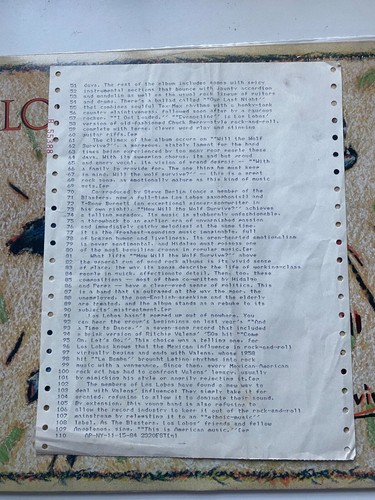 LO
51 days. The rest of the album includes romps with enjoy
52 instrumental sections that bounce with jaunty accordion
53 and mandolin as well as the usual rock lineup of guitars
54 and drums. There's a ballad called ""Our Last Night""
55 that combines soulful Tex-Mex rhythms with a honky-tonk
followed soon after by a raucous
57 rocker, ""I Got Loaded."" ""Evangeline"" is Los Lobos'
58 version of old-fashioned Chuck Berry-style rock-and-roll,
59 complete with terse, clever word play and stinging
60 guitar riffs.
61 The climax of the album occurs on ""Will the Wolf
62 Survive?"", a
63 times being experienced by too many poor people these
64 days. With its
65 and more vocal,
66 a family to provide for,
67 in mind. Will the wolf survive?"" --
68 rock song, as
69 gets.
70 Co-produced by Steve Berlin (once a member of the
71 Blasters, now a full-time Los Lobos saxophonist) and
72 T-Bone Burnett (an exceptional singer-songwriter in
73 his own right), ""How Will the Wolf Survive?"" achieves
74 a timeless
75 a throwback to an earlier era of unvarnished passion
76 and immediately catchy melodies; at the same time,
77 it is the
78 of brawny humor and hustlers. Its
79 is never sentimental, and Hidalgo must possess one
80 of the most beautiful croons in popular music.
81 What lifts ""How Will the Wolf Survive?"" above
82 the normal run of good rock albums is its vivid sense
83 of place, the way its songs describe the life of working-class
84 people in small, affectionate detail. Then, too, these
85 compositions -- most of them written by Hidalgo
86 and Perez -- have a clear-eyed sense of politics. This
87 is a band that is outraged at the way the poor, the
88 unemployed, the non-English-speaking and the elderly
89 are treated, and the album stands as a rebuke to its
90 subjects' mistreatment.
91 Los Lobos hasn't sprung up out of nowhere. You
92 can hear the group's beginnings on last year's ""And
93 a Time to Dance,"" a seven-song record that included
94 a brisk version of Ritchie Valens' '50s hit ""Come
95 On, Let's Go."" This choice was a telling one, for
96 Los Lobos know that the Mexican influence in rock-and-roll
97 virtually begins and ends with Valens, whose 1958
98 hit ""La Bamba"" brought Latino rhythms into rock
99 music with a vengeance. Since then, every Mexican-American
100 rock act has had to confront Valens' legacy, usually
101 by mimicking his style or hastily rejecting it.
102 The members of Los Lobos have found a new way to
103 deal with Valens' influence: They simply take it for
104 granted, refusing to allow it to dominate their sound.
105 By extension, this young band is also refusing to
106 allow the record industry to herd it out of the rock-and-roll
107 mainstream by relegating it to an ""ethnic-music""
108 label. As The Blasters, Los Lobos' friends and fellow
109 Angelenos, sing, ""This is American music.""
110 AP-NY-11-15-84 2320EST(m)